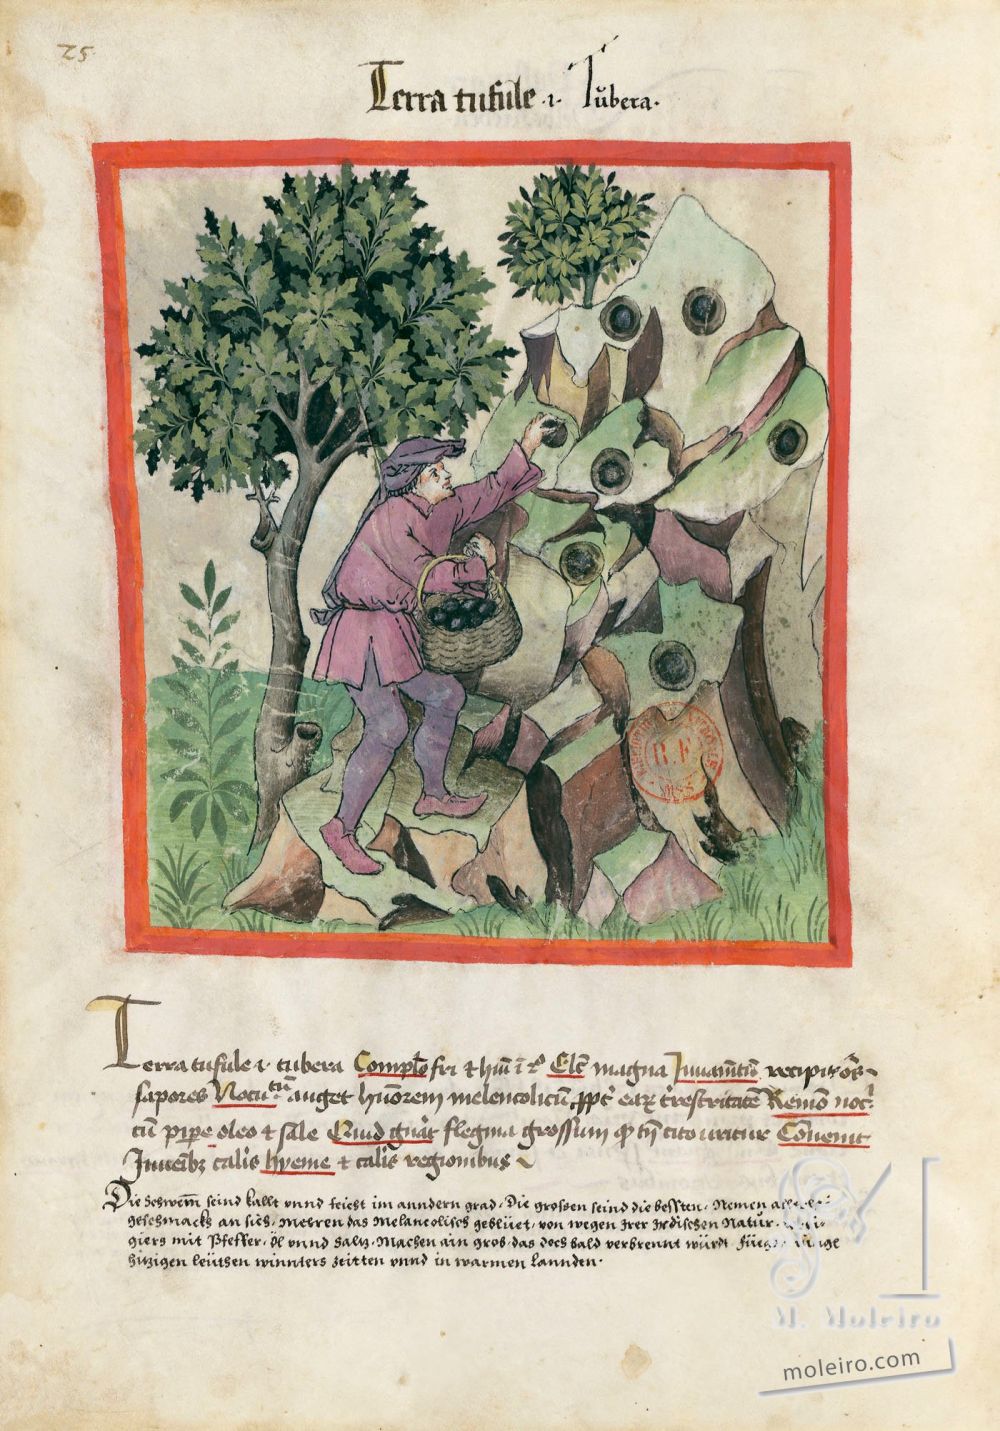 25
Terra tufule .i. Tubera.
Terra tufule .i. tubera Complo fri & hu i 2o Elc magna Juvamtu recipit os
sapores Nocutu auget humorem melencolicu ppt eaz trestritate Remo noc
cu pipe oleo & sale Quid gnat flegma grossum qd tn cito uritur Convenit
Juvenibz calis hyeme & calis regionibus
Die Schwem seind kallt vnnd feicht im anndern grad. Die grossen seind die bessten. Nemen
geschmack an sich. Mehren das Melancolisch geblüet. von wegen Irer Irdischen Natur.
giers mit Pfeffer. Öl vnnd Saltz. Machen ain grob. das doch bald verbrennt würdt.
hitzigen leüthen winnters zeitten vnnd in warmen Lannden.
R.F.
MSS
M. Moleiro
moleiro.com